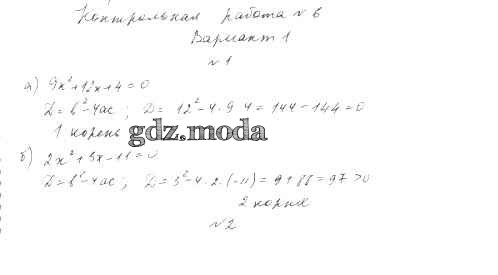 Контрольная работа № 6
Вариант 1
№ 1
а) 9x²+12x+4=0
D=b²-4ac; D=12²-4·9·4=144-144=0
1 корень
gdz.moda
б) 2x²+3x-11=0
D=b²-4ac; D=3²-4·2·(-11)=9+88=97>0
2 корня
№2